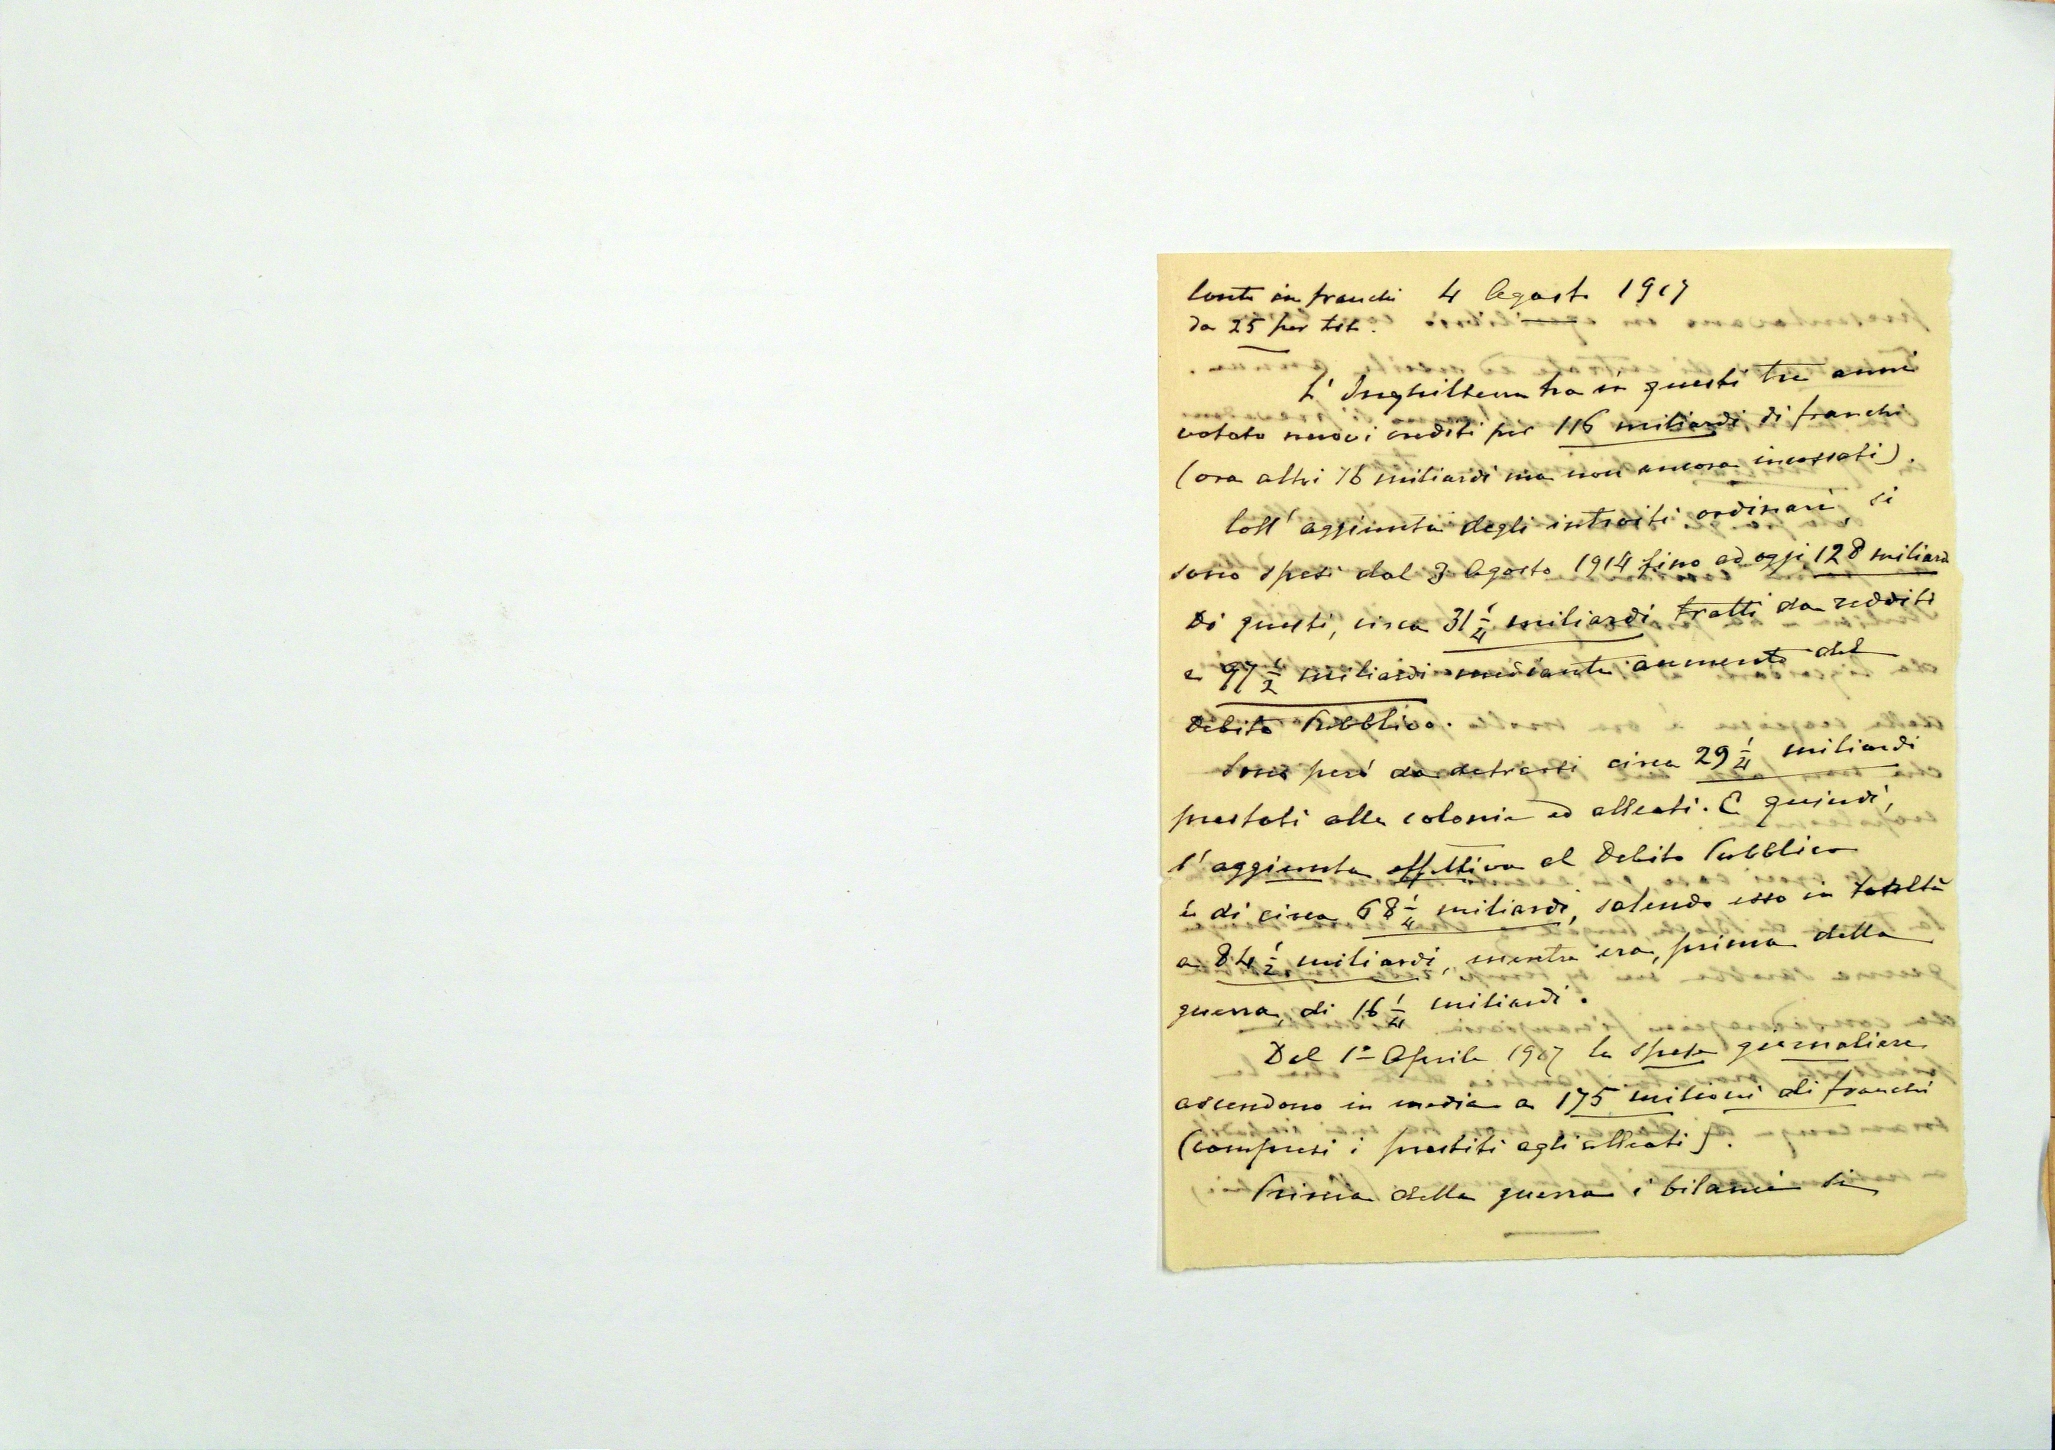 Conto in franchi 4 Agosto 1917
da 25 per
L'Inghilterra ha in questi tre anni
votato nuovi crediti per 116 miliardi di franchi
(ora altri 16 miliardi ma non ancora incassati).
Coll'aggiunta degli introiti ordinari, si
sono spesi dal 3 Agosto 1914 fino ad oggi 128 miliardi
Di questi, circa 31 1/4 miliardi tratti da redditi
e 97 1/2 miliardi mediante aumento del
Debito Pubblico.
Sono però da detrarsi circa 29 1/4 miliardi
prestati alle colonie ed alleati. E quindi,
l'aggiunta effettiva al Debito Pubblico
è di circa 68 1/4 miliardi, salendo esso in totalità
a 84 1/2 miliardi, mentre era, prima della
guerra, di 16 1/4 miliardi.
Dal 1° Aprile 1917 le spese giornaliere
ascendono in media a 175 milioni di franchi
(compresi i prestiti agli alleati).
Prima della guerra i bilanci si